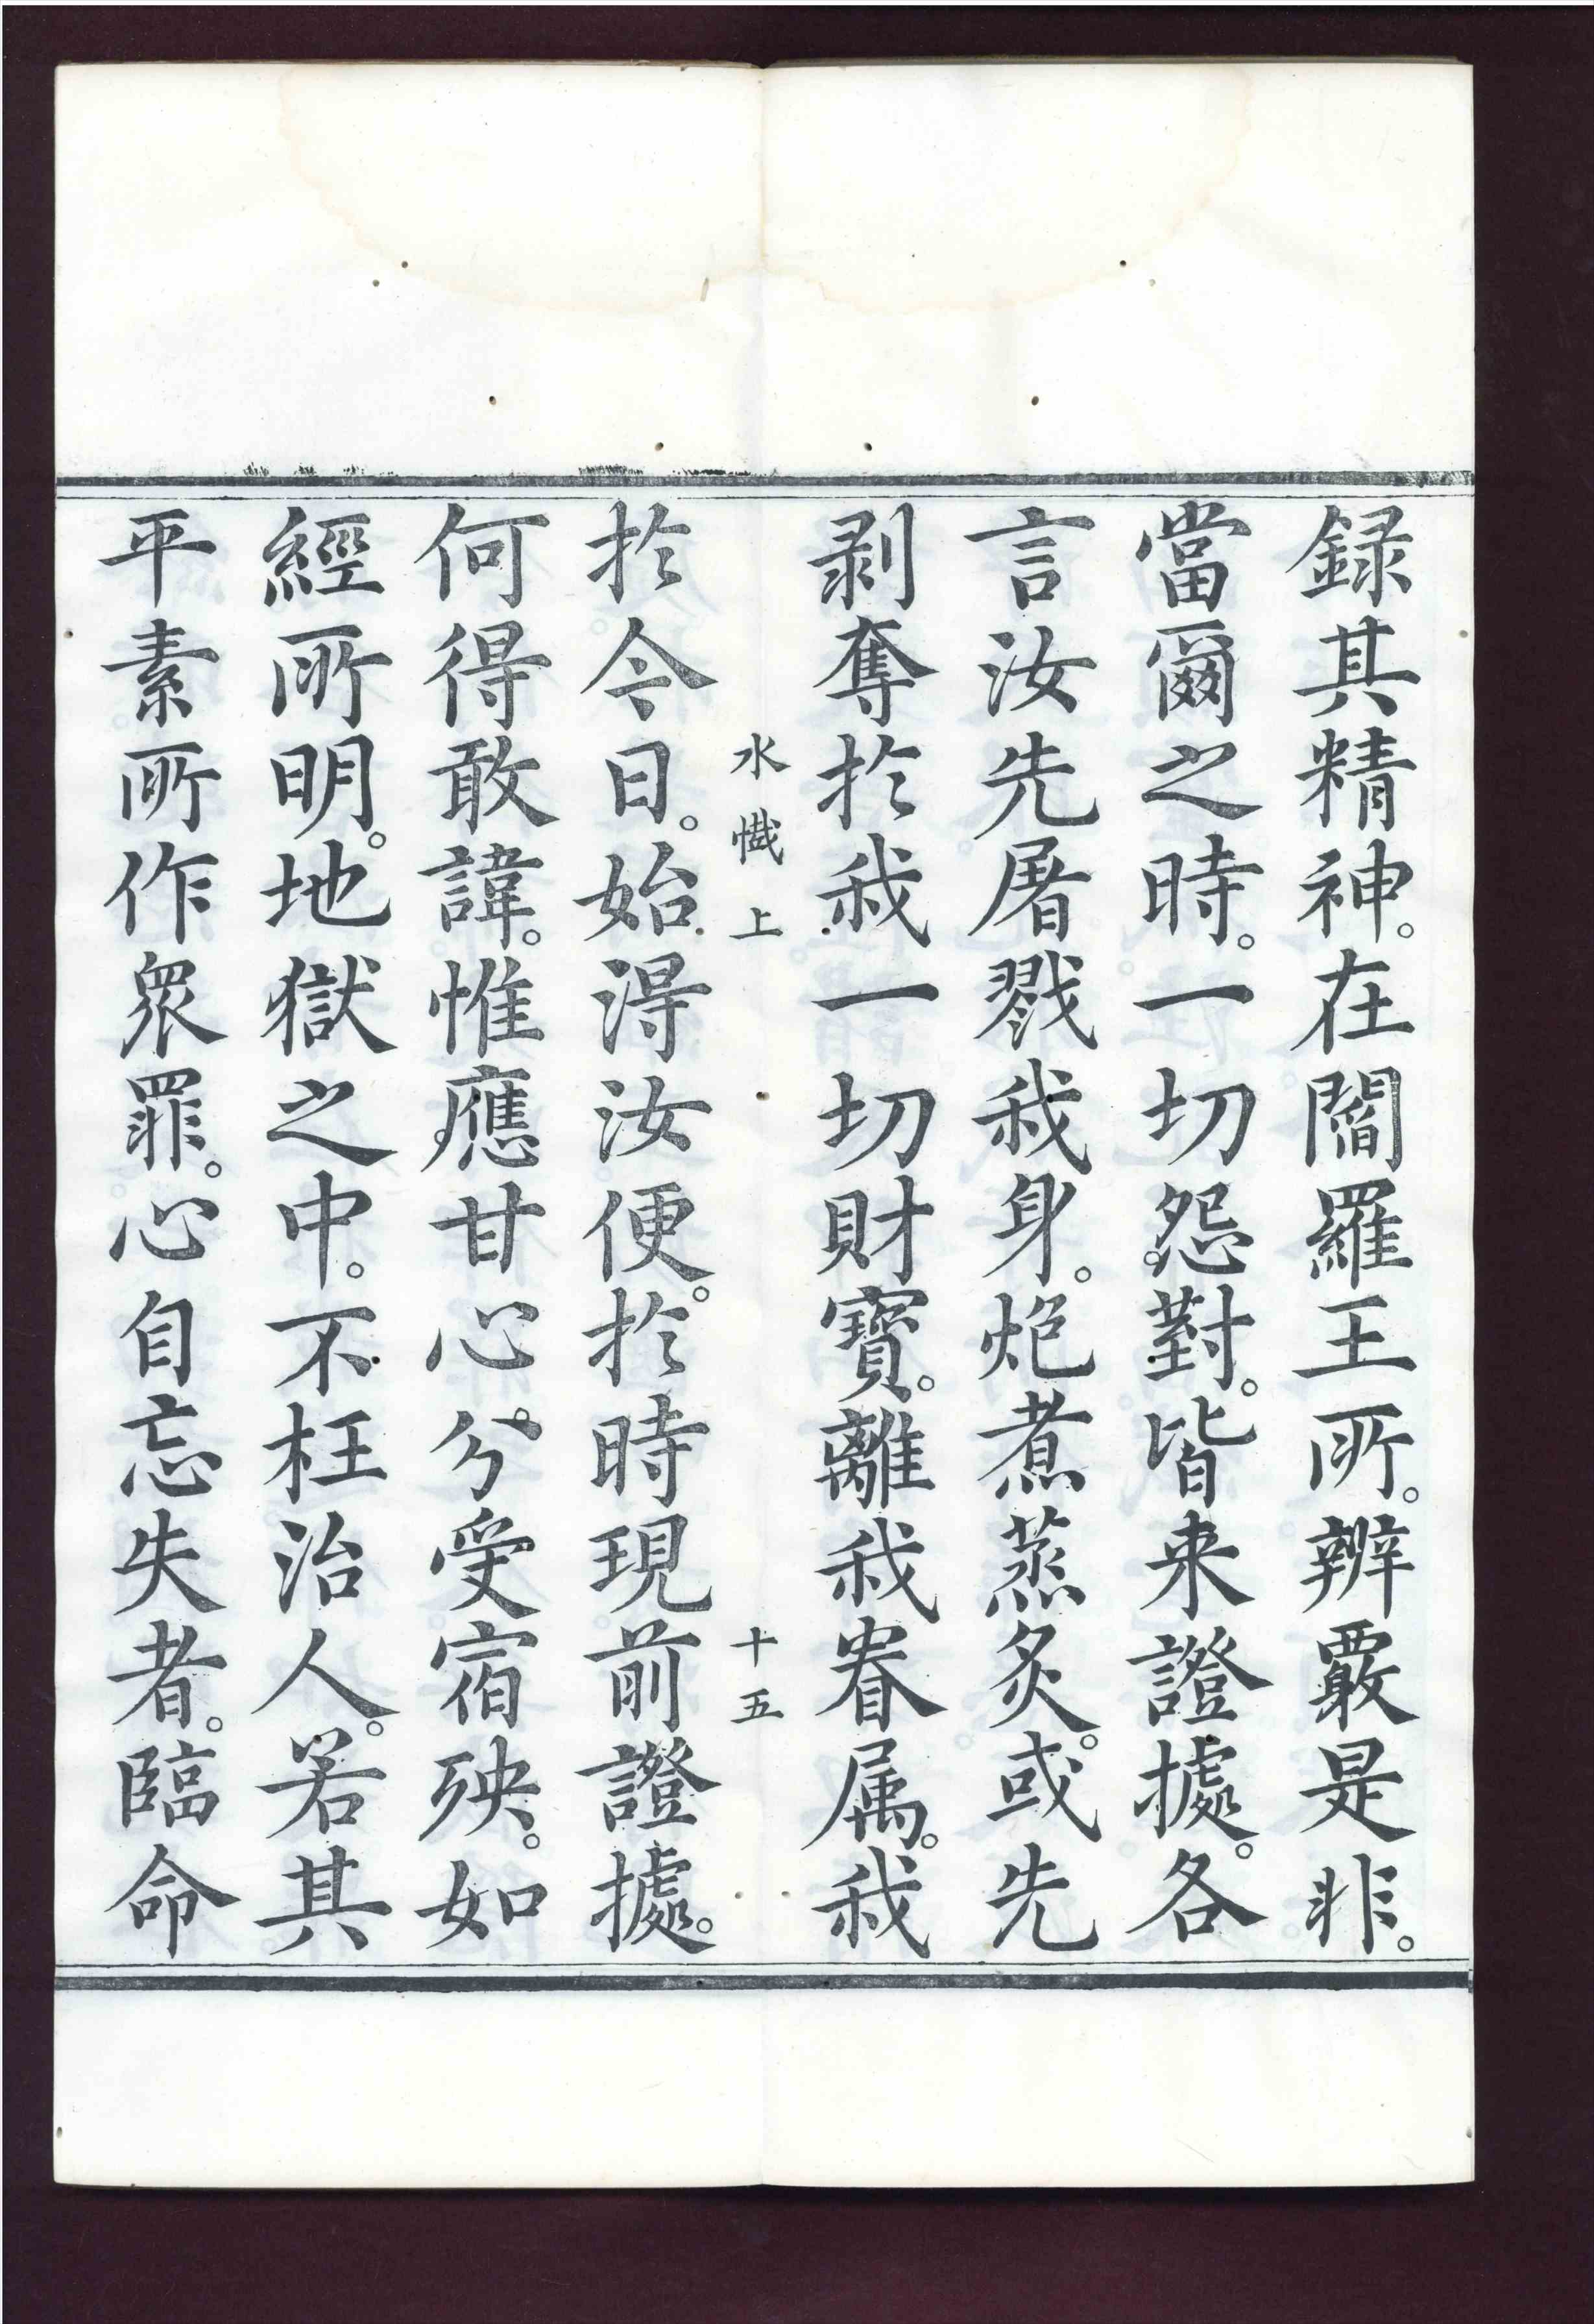 録其精神。在閻羅王所。辨覈是非。
當爾之時。一切怨對。皆来證據。各
言汝先屠戮我身。炮煮蒸炙。或先
剥奪於我一切財寶。離我眷属。我
水懴上 十五
於今日。始得汝便。於時現前證據。
何得敢諱。惟應甘心分受宿殃。如
經所明。地獄之中。不枉治人。若其
平素所作衆罪。心自忘失者。臨命